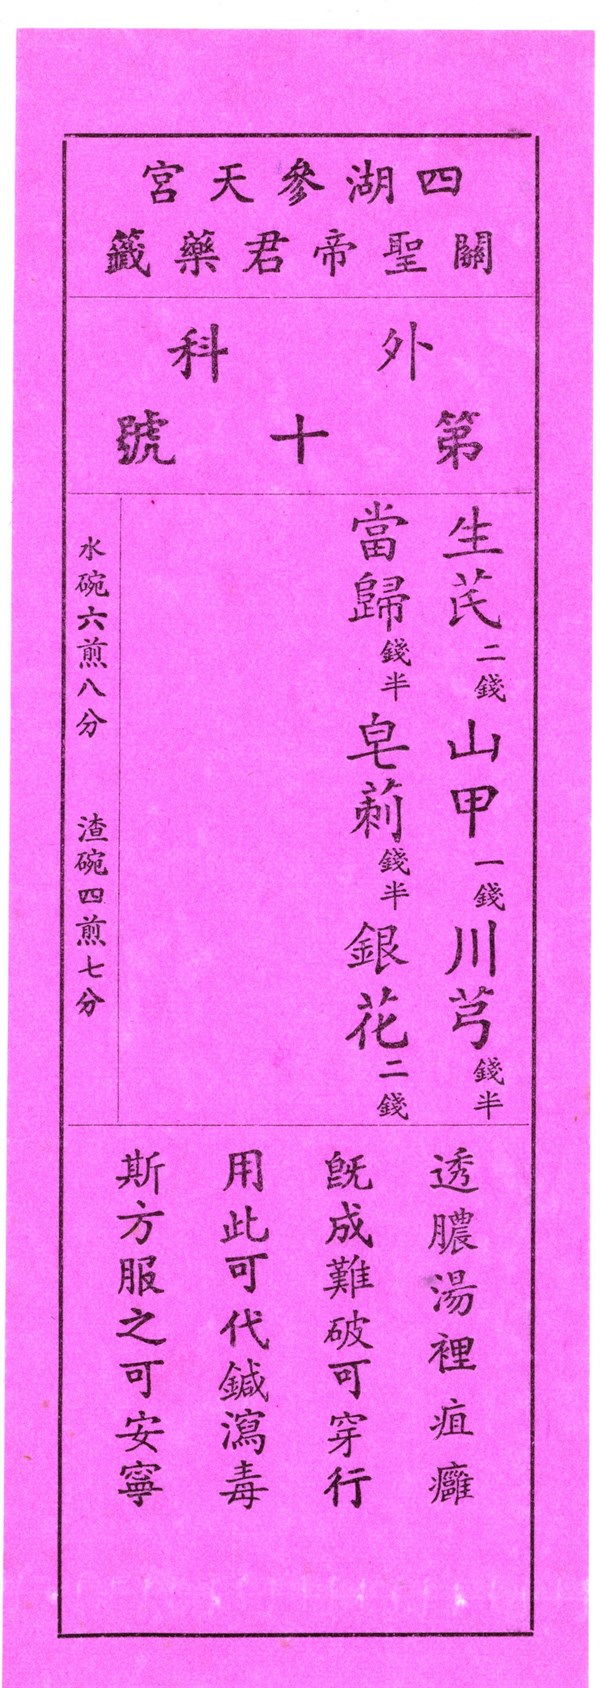 四湖參天宮
關聖帝君藥籤
外科
第十號
生芪二錢山甲一錢川芎錢半
當歸錢半皂莿錢半銀花二錢
水碗六煎八分　渣碗四煎七分
透膿湯裡疽癰
既成難破可穿行
用此可代鍼瀉毒
斯方服之可安寧